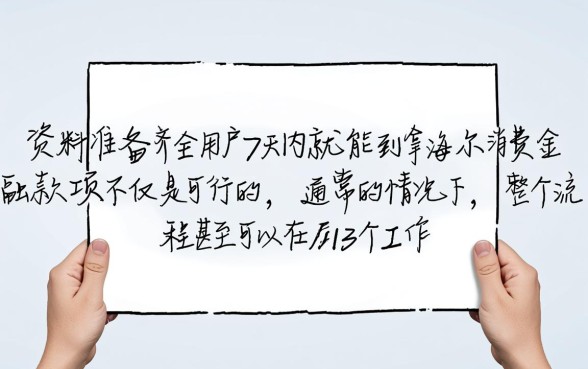 资料准备齐全用户7天内就能到拿海尔消费金
融款项不仅是可行的，通常的情况下，整个流
程甚至可以在后13个工作